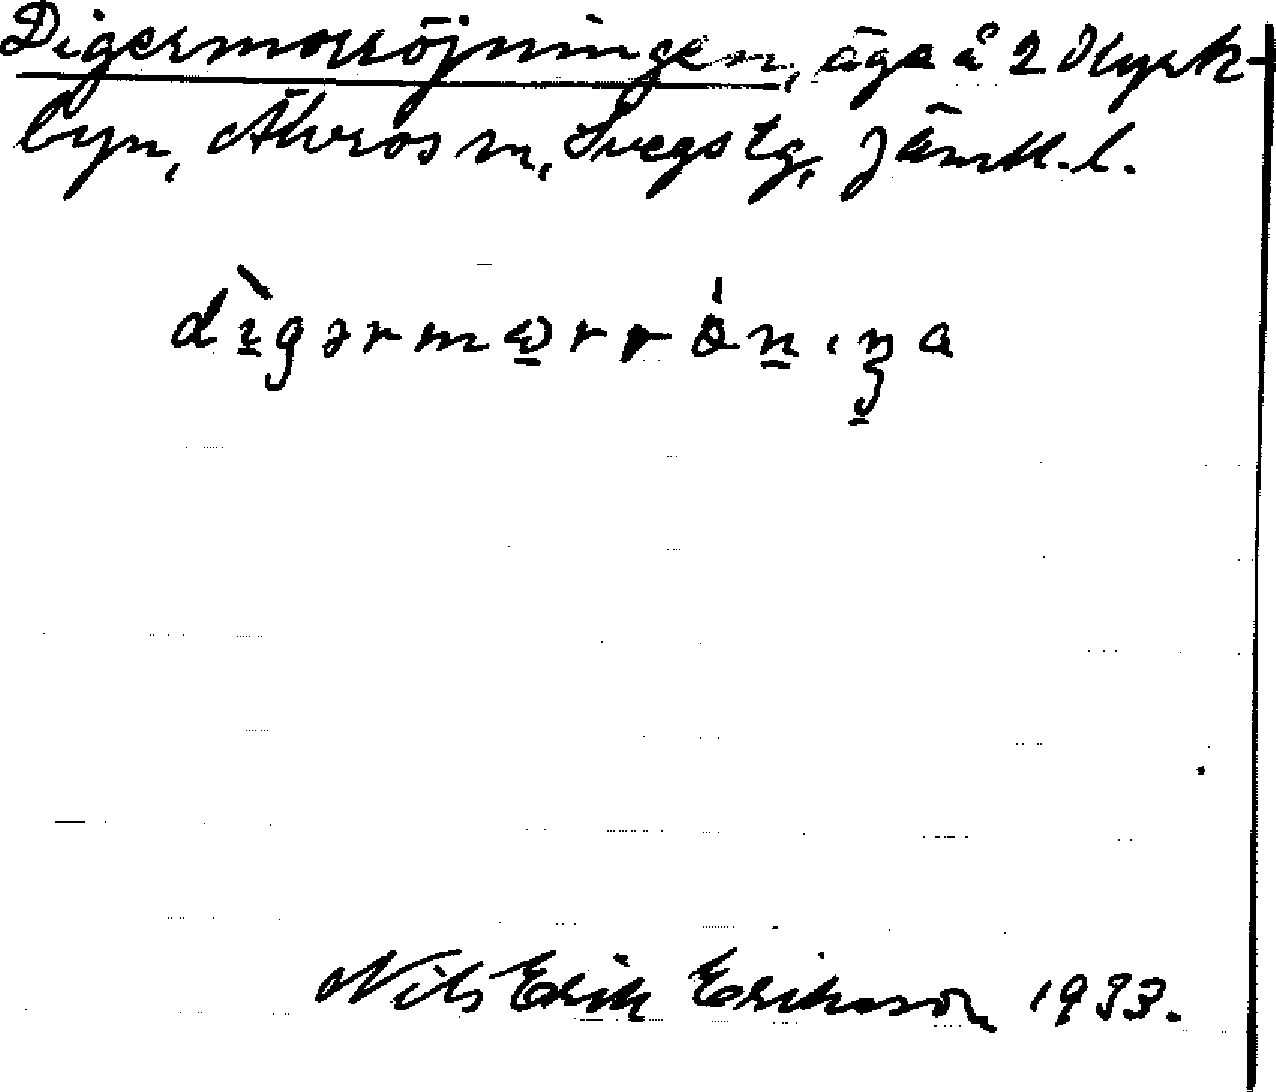 Digermorröjningen, äga å 2 Kyrk-
byn, Älvros sn, Svegs tg, Jämtl. l.
dìgərmωrrö̀nıŋa
Nils Erik Erikson 1933.